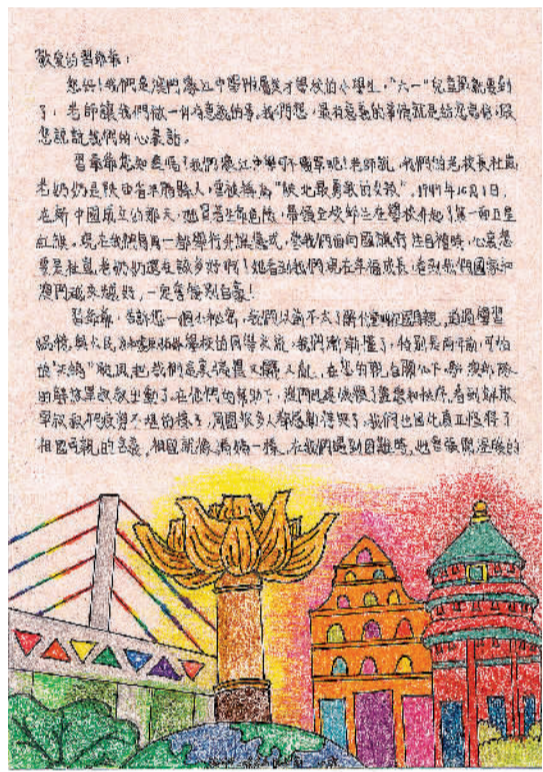 敬愛的習爺爺：
您好！我們是澳門濠江中學附屬英才學校的小學生，"六一"兒童節就要到
了，老師讓我們做一件有意義的事，我們想，最有意義的事情就是給您寫信，跟
您說說我們的心裏話。
習爺爺您知道嗎？我們濠江中學可不簡單呢！老師說，我們的老校長杜嵐
老奶奶是陝西省米脂縣人，曾被稱為"陝北最勇敢的女孩"，1949年10月1日，
在新中國成立的那天，她冒著生命危險，帶領全校師生在學校升起了第一面五星
紅旗。現在我們每周一都舉行升旗儀式，當我們面向國旗行注目禮時，心裏想
要是杜嵐老奶奶還在該多好啊！她看到我們現在幸福成長，看到我們國家和
澳門越來越好，一定會特別自豪！
習爺爺，告訴您一個小秘密，我們以前不太了解什麼叫祖國母親，通過學習
國情，與人民 學校的同學交流，我們漸漸懂了，特別是兩年前，可怕
的"天鴿"颱風把我們高美 ，在您的親自關心下，駐澳部隊
的解放軍叔叔出動了，在他們的幫助下，澳門迅速恢復了整潔和秩序，看到解放
軍叔叔們疲勞不堪的樣子，周圍很多人都感動得哭了，我們也因此真正懂得了
祖國母親的含義，祖國就像媽媽一樣，在我們遇到困難時，她會張開溫暖的